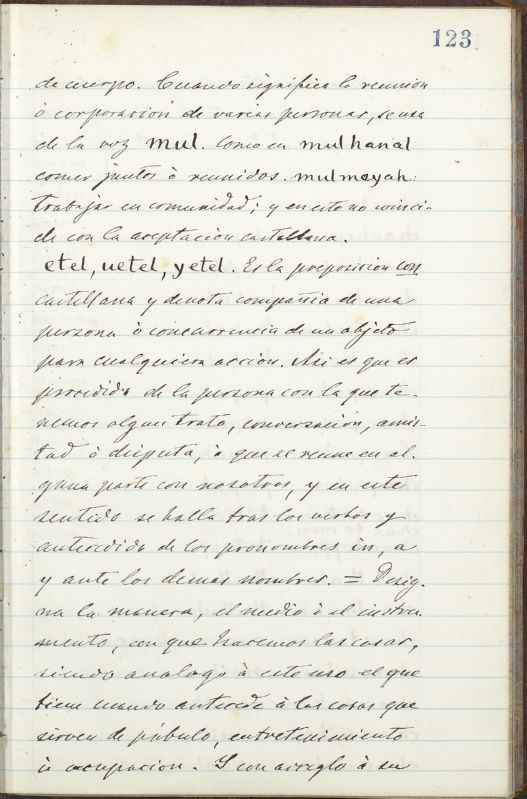 123
de cuerpo. Cuando significa la reunion
ó corporacion de varias personas, se usa
de la voz mul. Como en mulhanal
comer juntos ó reunidos. mulmeyah:
trabajar en comunidad; y en esto no coinci-
de con la aceptacion castellana.
etel, uetel, yetel. Es la preposicion con
castellana y denota compañia de una
persona ó concurrencia de un objeto
para cualquiera accion. Asi es que es
precedida de la persona con la que te-
nemos algun trato, conversacion, amis-
tad ó disputa, ó que se reune en al-
guna parte con nosotros, y en este
sentido se halla tras los verbos y
antecedido de los pronombres in, a
y ante los demas nombres. = Desig-
na la manera, el medio ó el instru-
mento, con que hacemos las cosas,
siendo analogo á este uso el que
tiene cuando antecede á las cosas que
sirven de pábulo, entretenimiento
ú ocupacion. Y con arreglo á su